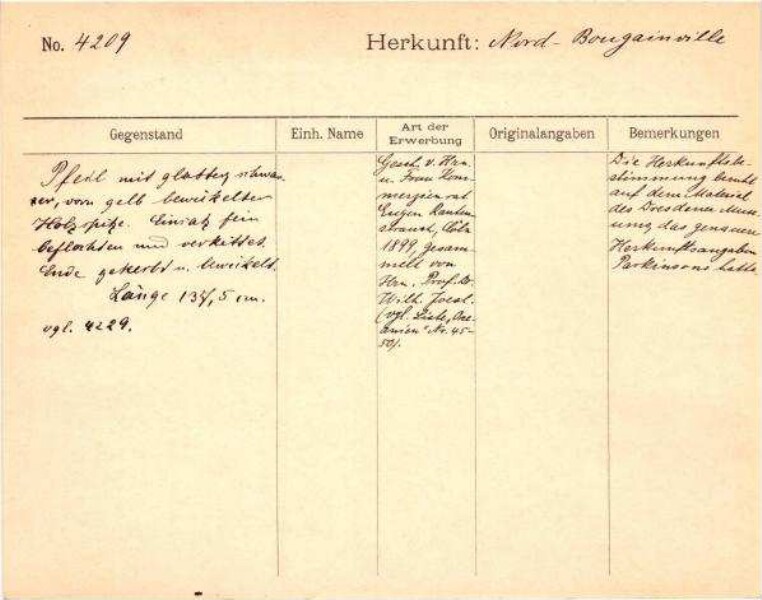 No. 4209
Herkunft: Nord-Bougainville
Gegenstand
Einh. Name
Art der Erwerbung
Originalangaben
Bemerkungen
Pfeil mit glatter, schwar-
zer, vorn gelb bewickelter
Holzspitze. Einsatz fein
beflochten und verkittet.
Ende gekerbt u. bewickelt.
Länge 137,5 cm.
vgl. 4229.
Gesch. v. Hrn.
u. Frau Kom-
merzienrat
Eugen Rauten-
strauch, Cöln
1899, gesam-
melt von
Hrn. Prof. Dr.
Wilh. Joest.
(vgl. Liste „Oze-
anien" Nr. 45-
50).
Die Herkunftsbe-
stimmung beruht
auf dem Material
des Dresdener Muse-
ums, das genauere
Herkunftsangaben
Parkinsons hatte